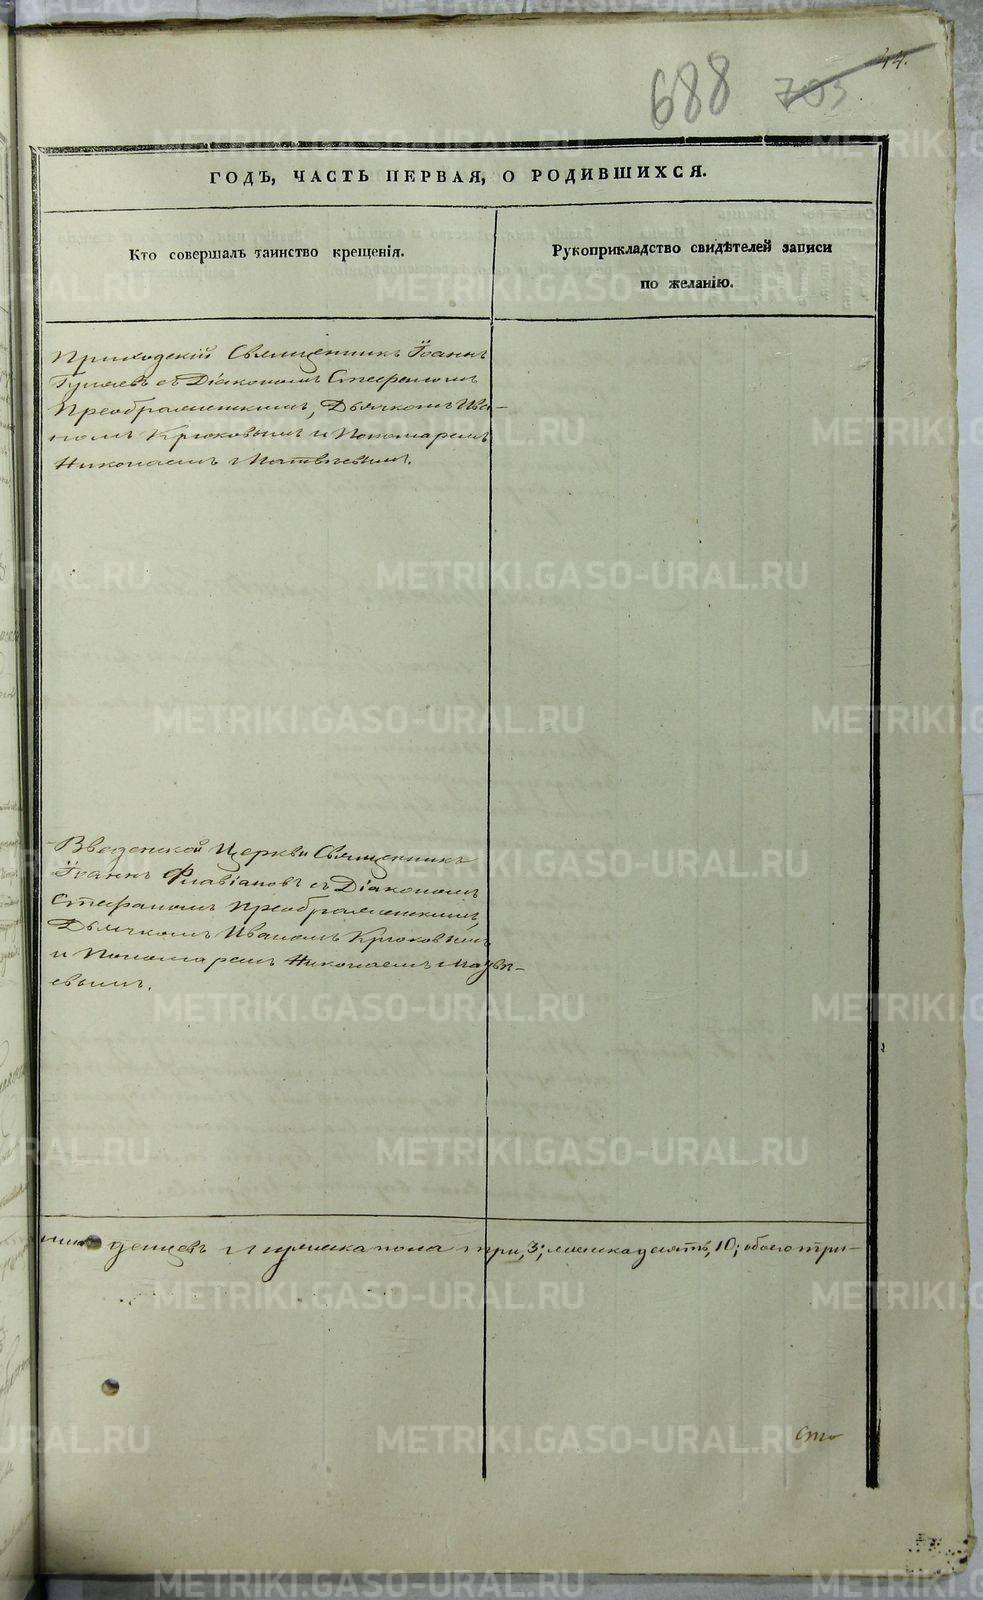 44.
688 703
ГОДЪ, ЧАСТЬ ПЕРВАЯ, О РОДИВШИХСЯ.
Кто совершалъ таинство крещенія.
Рукоприкладство свидѣтелей записи
по желанію.
Приходскій Священникъ Іоаннъ
съ Діакономъ Стефаномъ
Преображенскимъ, Дьячкомъ Ива-
номъ Крюковымъ и Пономаремъ
Николаемъ Матвѣевымъ.
Введенской Церкви Священникъ
Іоаннъ Флавіановъ съ Діакономъ
Стефаномъ Преображенскимъ,
Дьячкомъ Иваномъ Крюковымъ
и Пономаремъ Николаемъ Матвѣ-
евымъ.
мужеска пола три, 3; женска десять, 10; обоего три-
METRIKI.GASO-URAL.RU